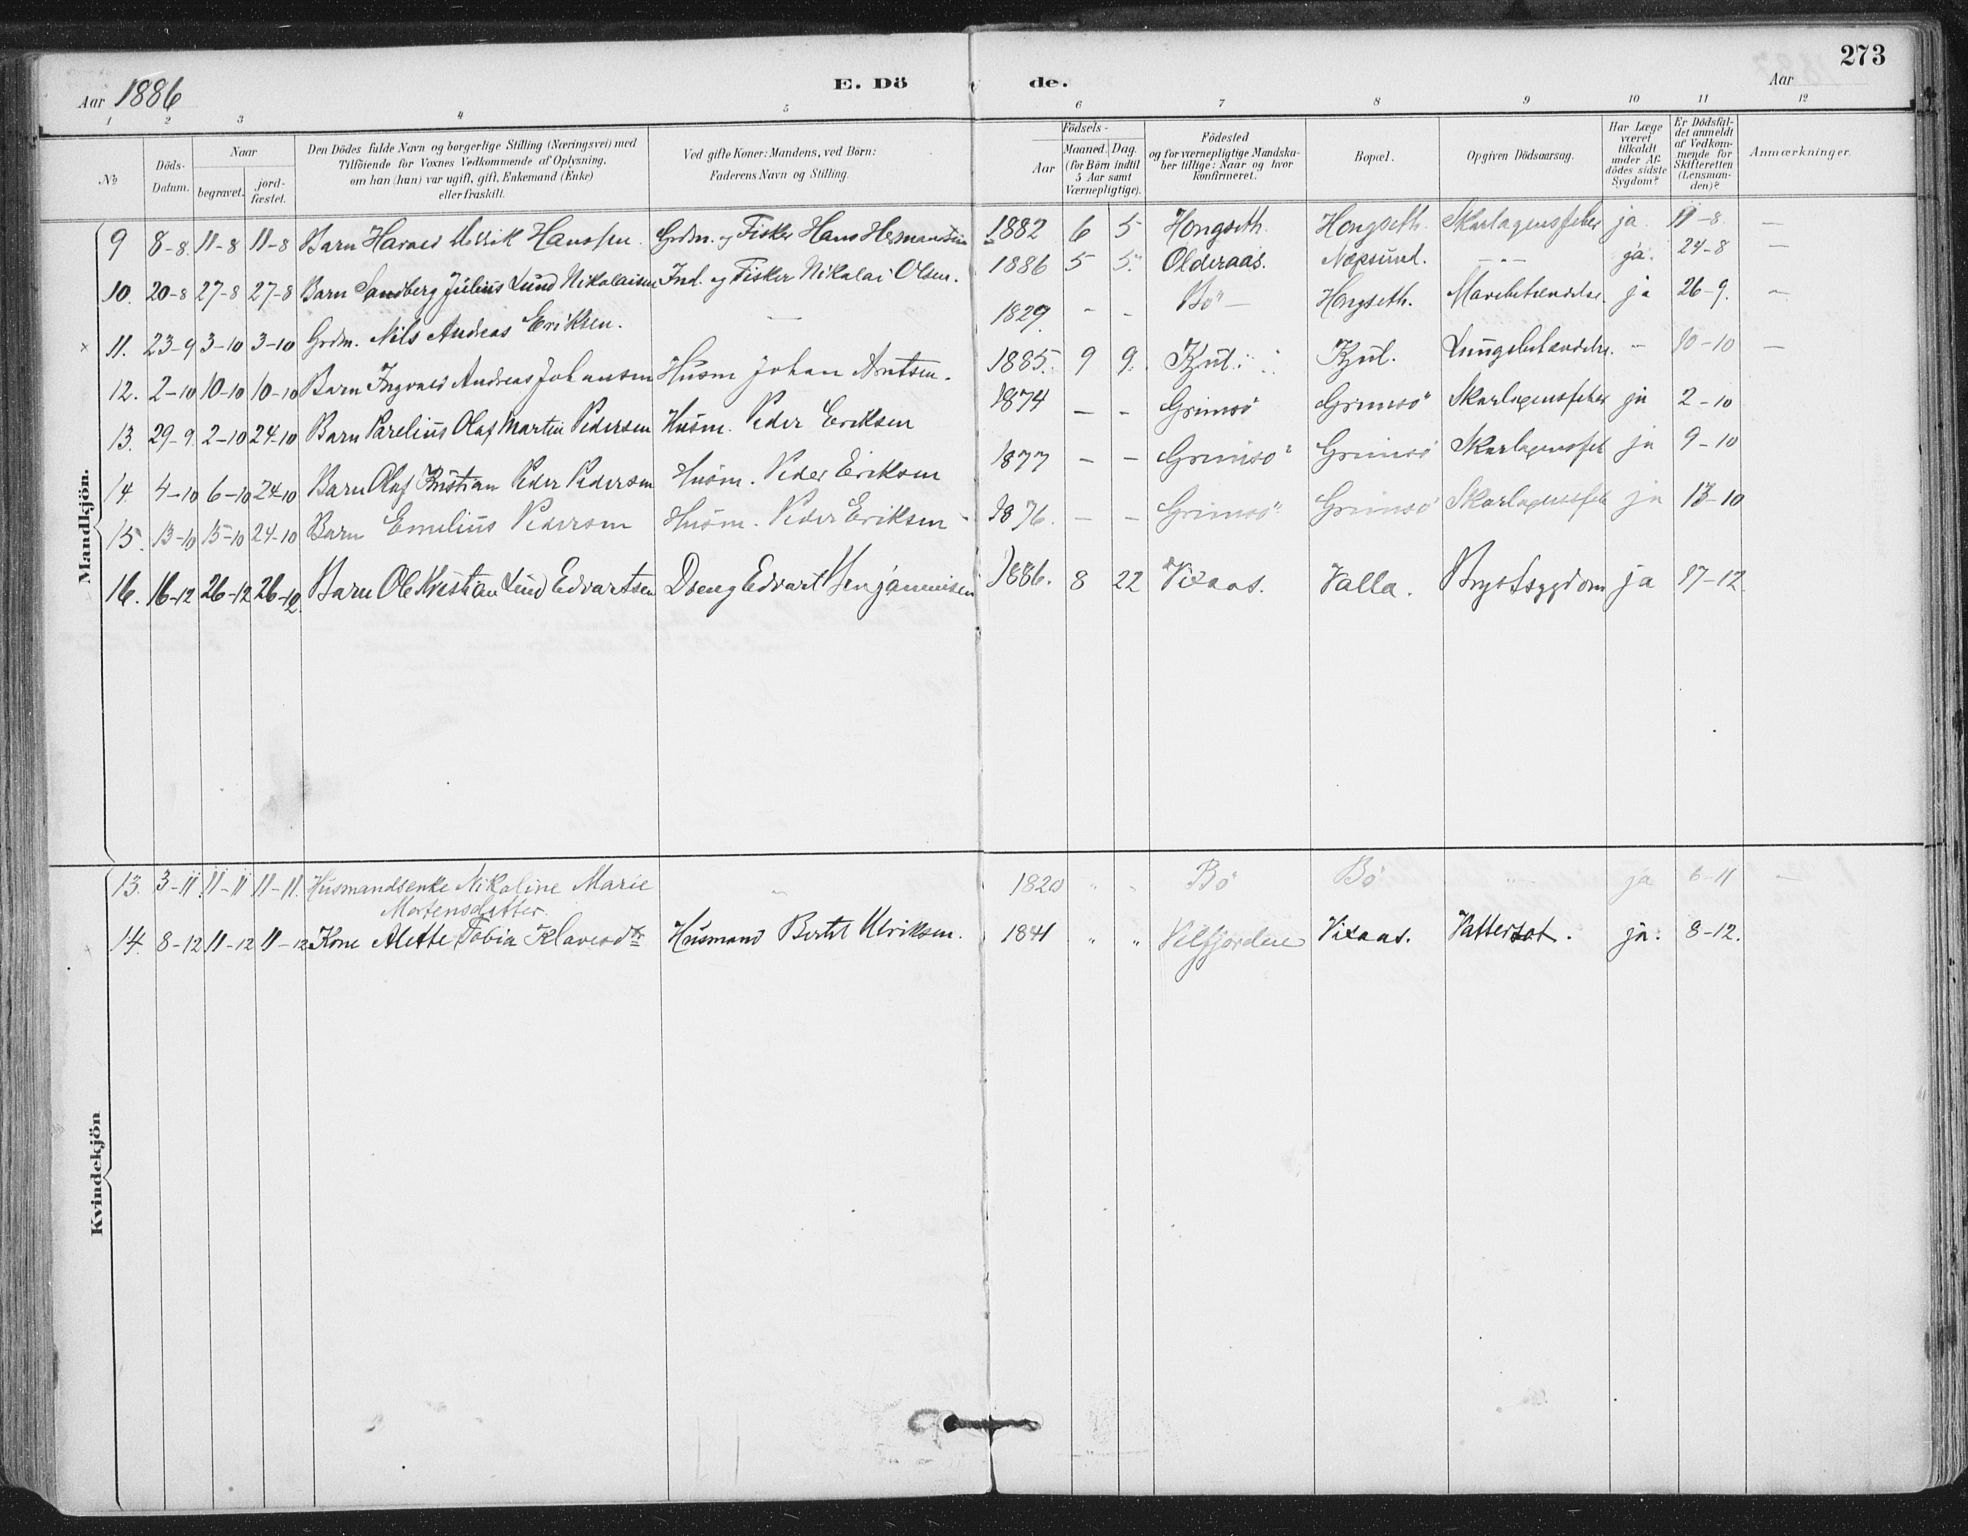 273
Aar 1886
E. Dö de.
Aar
1 2 3 4 5 6 7 8 9 10 11 12
№
Döds-Datum.
Naar
begravet.
jord-fæstet.
Den Dödes fulde Navn og borgerlige Stilling (Næringsvei) med
Tilföiende for Voxnes Vedkommende af Oplysning,
om han (hun) var ugift, gift, Enkemand (Enke)
eller fraskilt.
Ved gifte Koner: Mandens, ved Börn:
Faderens Navn og Stilling.
Födsels-
Aar
Maaned. Dag.
(for Börn indtil
5 Aar samt
Værnepligtige).
Födested
og for værnepligtige Mandska-
ber tillige: Naar og hvor
konfirmeret.
Bopæl.
Opgiven Dödsaarsag.
Har Læge
været
tilkaldt
under Af-
dödes sidste
Sygdom?
Er Dödsfal-
det anmeldt
af Vedkom-
mende for
Skifteretten
(Lensman-
den)?
Anmærkninger.
Mandkjön.
9 8-8. 11-8 11-8 Barn Harald Ulrik Hanssen. Grdm. og Fisker Hans Hermansen 1882 6 5 Hongseth. Hongseth. Skarlagensfeber ja. 11-8. —
10. 20-8 27-8 27-8 Barn Sandberg Julius Lund Nikolaisen Ind. og Fisker Nikolai Olsen. 1886 5 5. Olderaas. Næpsund. — — ja. 24-8 —
11. 23-9 3-10 3-10 Grdm. Nils Andreas Eriksen. — 1829. - - Bö — Hongseth. Mavebetændelse. ja 26-9. —
12. 2-10 10-10 10-10 Barn Ingvald Andreas Johansen Husm Johan Antsen. 1885. 9 9. Kjul. Kjul. Lungebetændelse. — 10-10 —
13. 29-9. 2-10 24-10 Barn Parelius Olaf Martin Pedersen Husm. Peder Eriksen 1874 — - Grimsö Grimsö Skarlagensfeber ja 2-10
14 4-10 6-10 24-10 Barn Olaf Kristian Peder Pedersen Husm. Peder Eriksen 1877 — — Grimsö Grimsö Skarlagensfeb ja 9-10
15. 13-10 15-10 24-10 Barn Emelius Pedersen Husm. Peder Eriksen 1876. — — Grimsö Grimsö Skarlagensfeb ja 13-10
16. 16-12 26-12 26-12 Barn Ole Kristian Lund Edvartsen Dreng Edvart Benjaminsen 1886. 8 22 Vixaas. Valla. Brystsygdom ja 17-12.
Kvindekjön
13. 3-11. 11-11 11-11. Husmandsenke Nikoline Marie
Mortensdatter. „ 1820 „ „ Bö Bö „ ja 6-11 —
14. 8-12 11-12 11-12 Kone Alette Tobia Klausdtr Husmand Bertil Ulriksen. 1841 „ „ Velfjorden Vixaas. Vattersot. ja. 8-12.